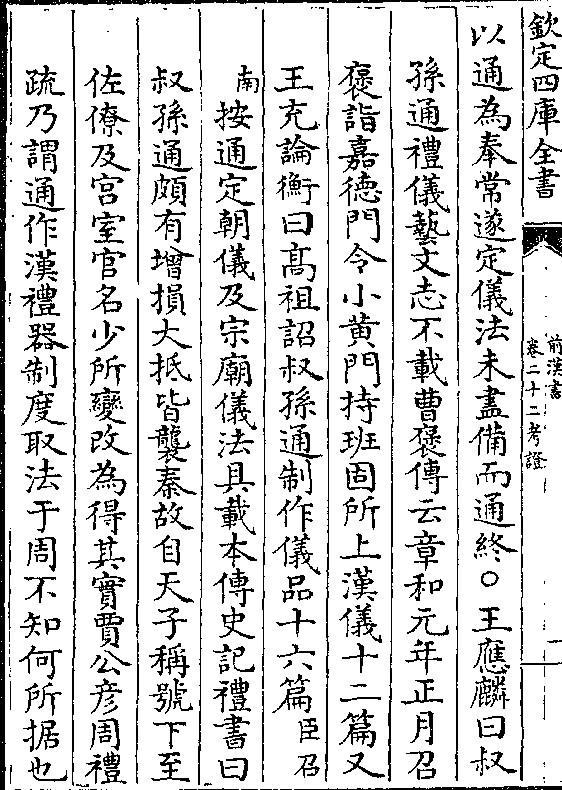 欽定四庫全書
前漢書
卷二十二考證
一
以通為奉常遂定儀法未盡備而通終○王應麟曰叔
孫通禮儀藝文志不載曹褒傳云章和元年正月召
褒詣嘉德門令小黄門持班固所上漢儀十二篇又
王充論衡曰髙祖詔叔孫通制作儀品十六篇臣召
南按通定朝儀及宗廟儀法具載本傳史記禮書曰
叔孫通頗有增損大抵皆襲秦故自天子稱號下至
佐僚及宫室官名少所變改為得其實賈公彦周禮
疏乃謂通作漢禮器制度取法于周不知何所据也